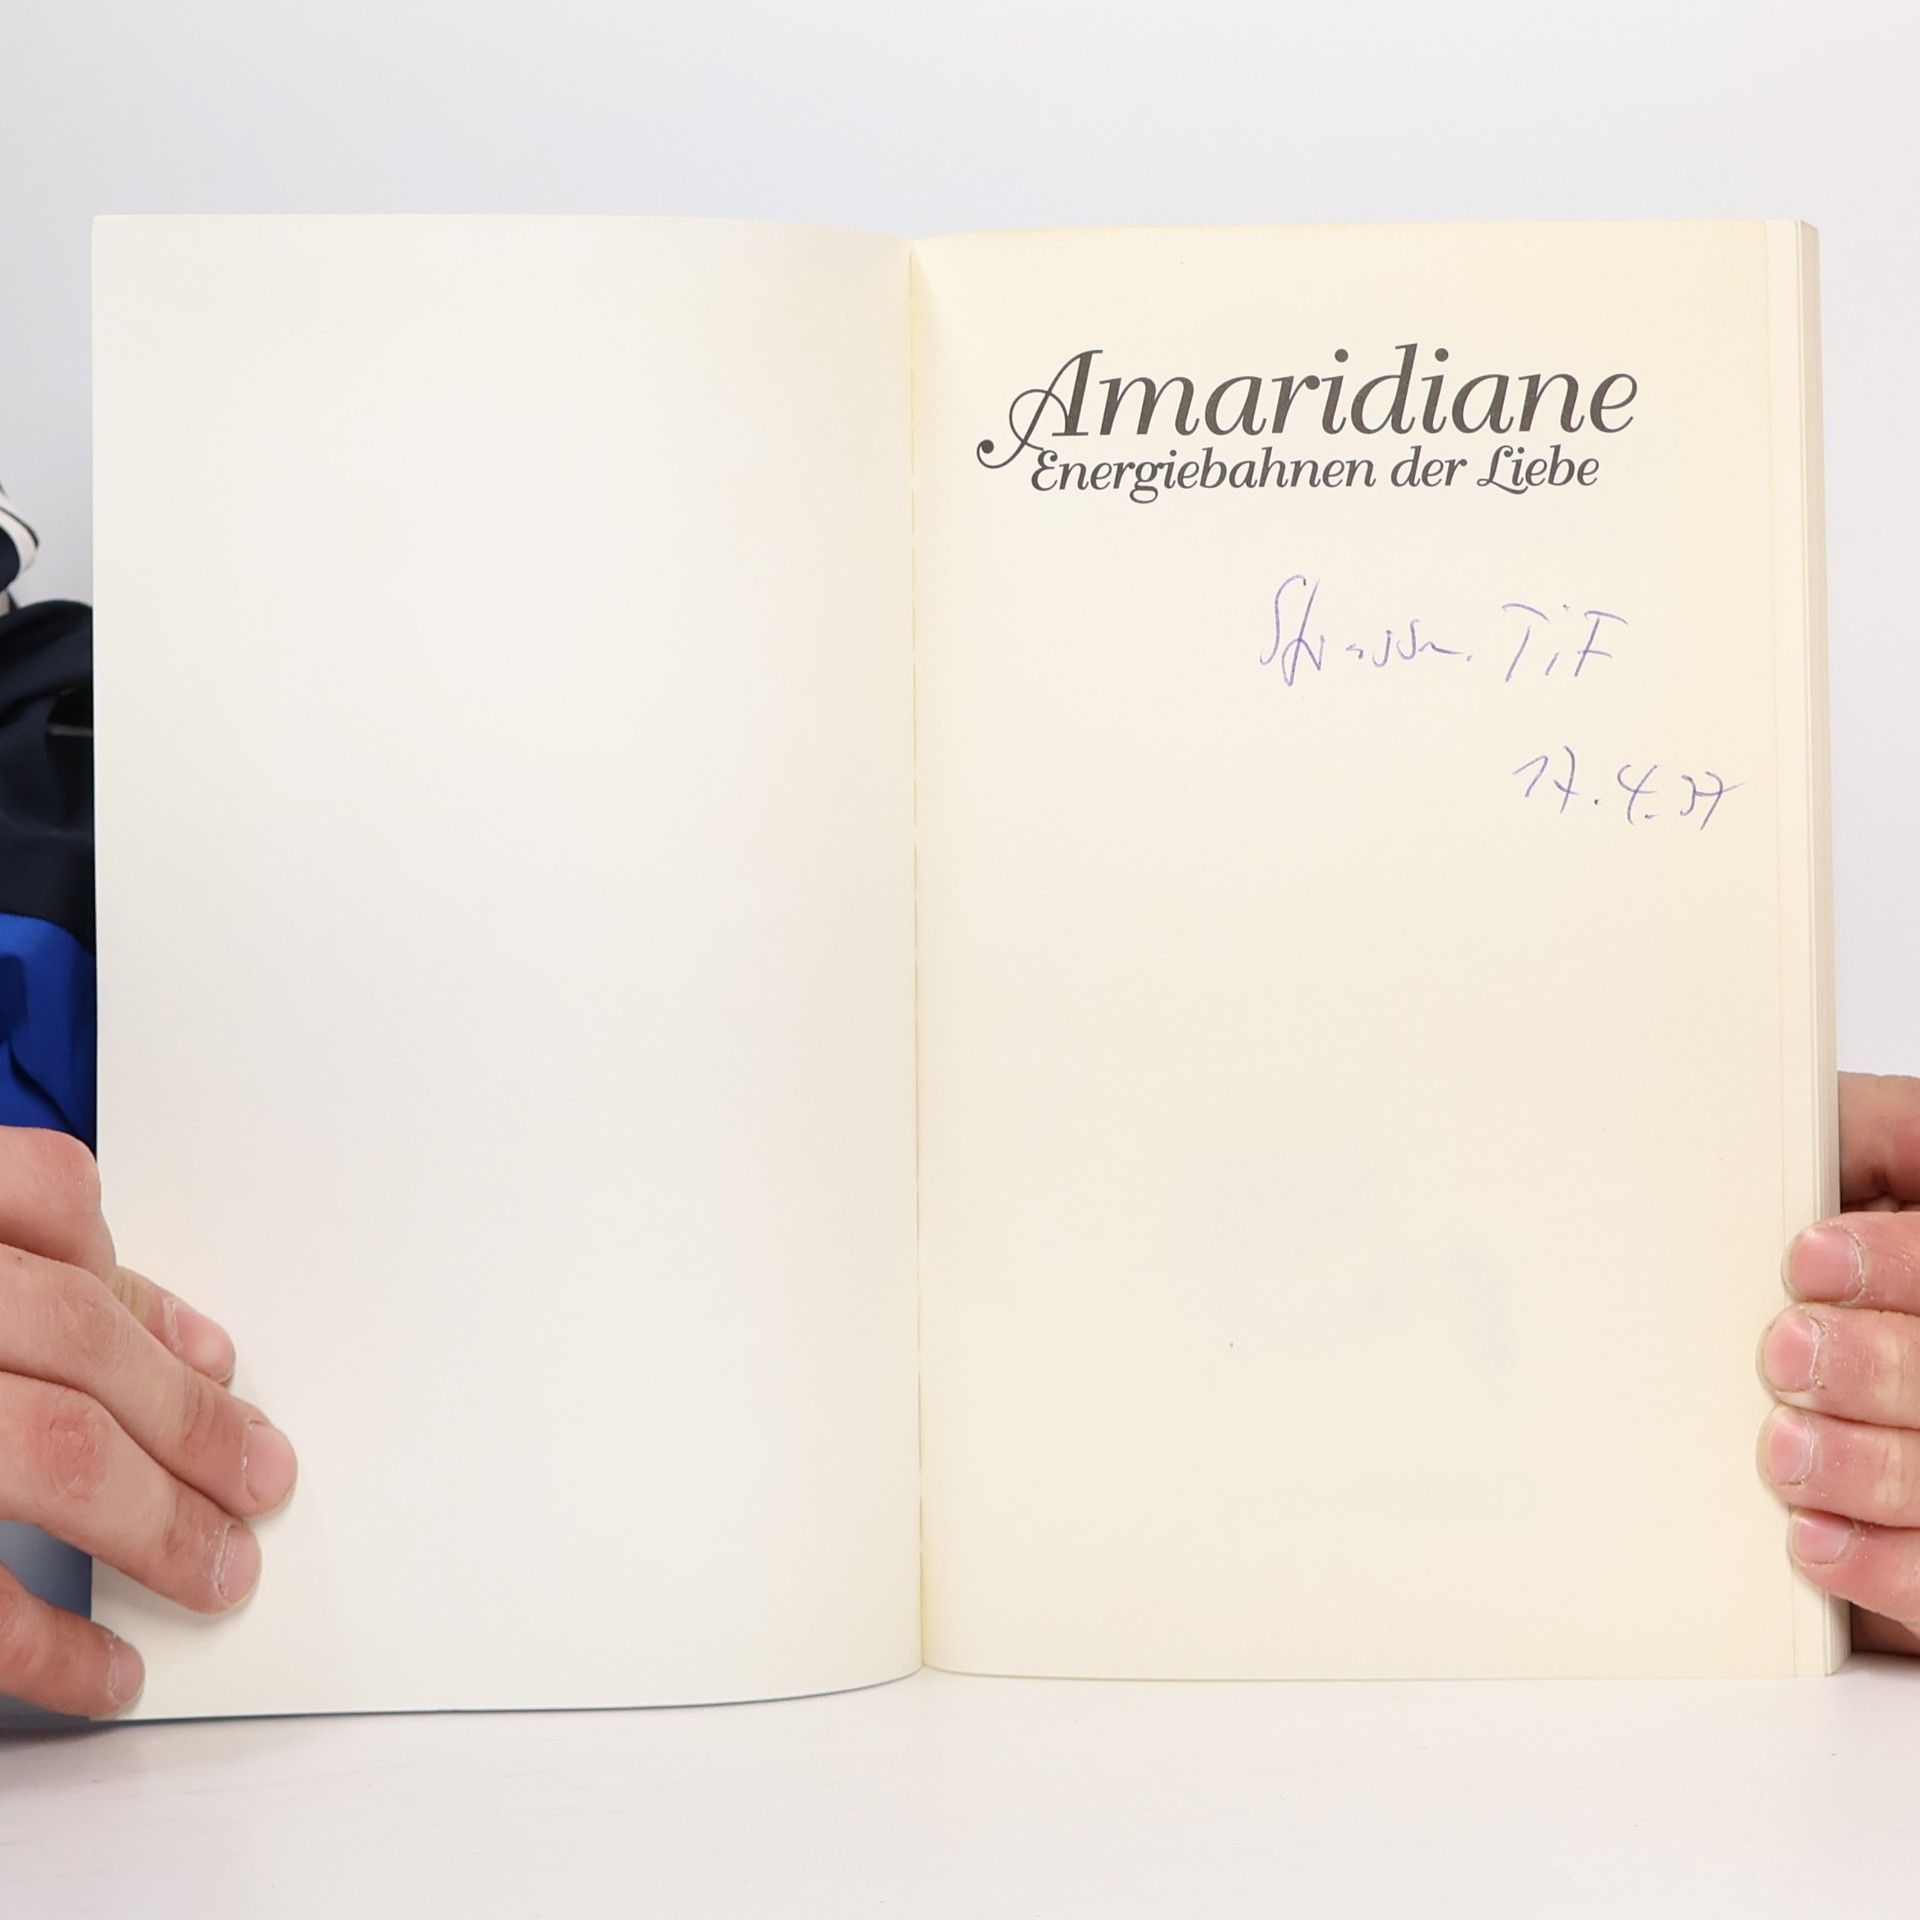 Amaridiane
Energiebahnen der Liebe
TiF
17.4.97